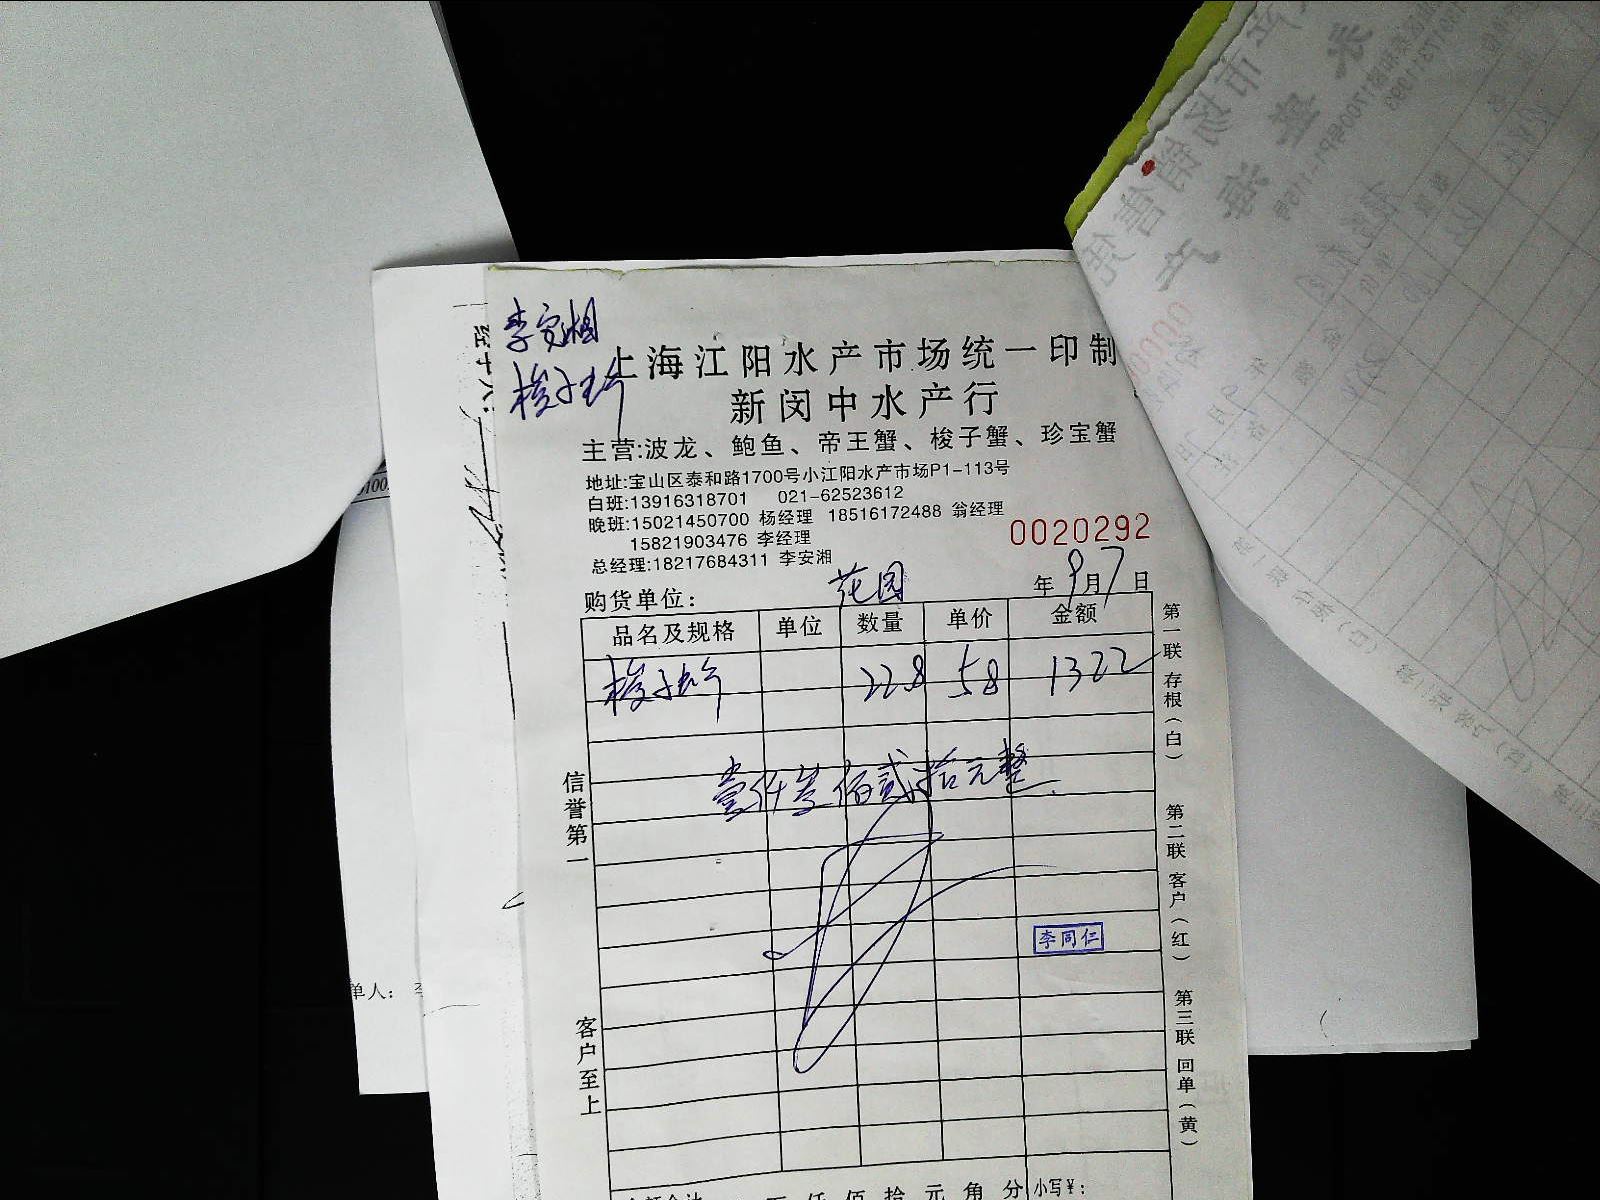 李安湘
梭子蟹
上海江阳水产市场统一印制
新闵中水产行
主营:波龙、鲍鱼、帝王蟹、梭子蟹、珍宝蟹
地址:宝山区泰和路1700号小江阳水产市场P1-113号
白班:13916318701 021-62523612
晚班:15021450700 杨经理 18516172488 翁经理
15821903476 李经理
总经理:18217684311 李安湘
0020292
购货单位: 花园 年9月7日
品名及规格 单位 数量 单价 金额
梭子蟹 22.8 58 1322
壹仟叁佰贰拾元整
李同仁
信誉第一
客户至上
第一联 存根(白)
第二联 客户(红)
第三联 回单(黄)
仟佰拾元角分 小写¥:
经十八:
单人: